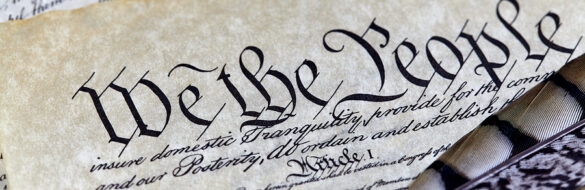 We the People
insure domestic Tranquility, provide for the com
and our Posterity, do ordain and establish th
Article. I.